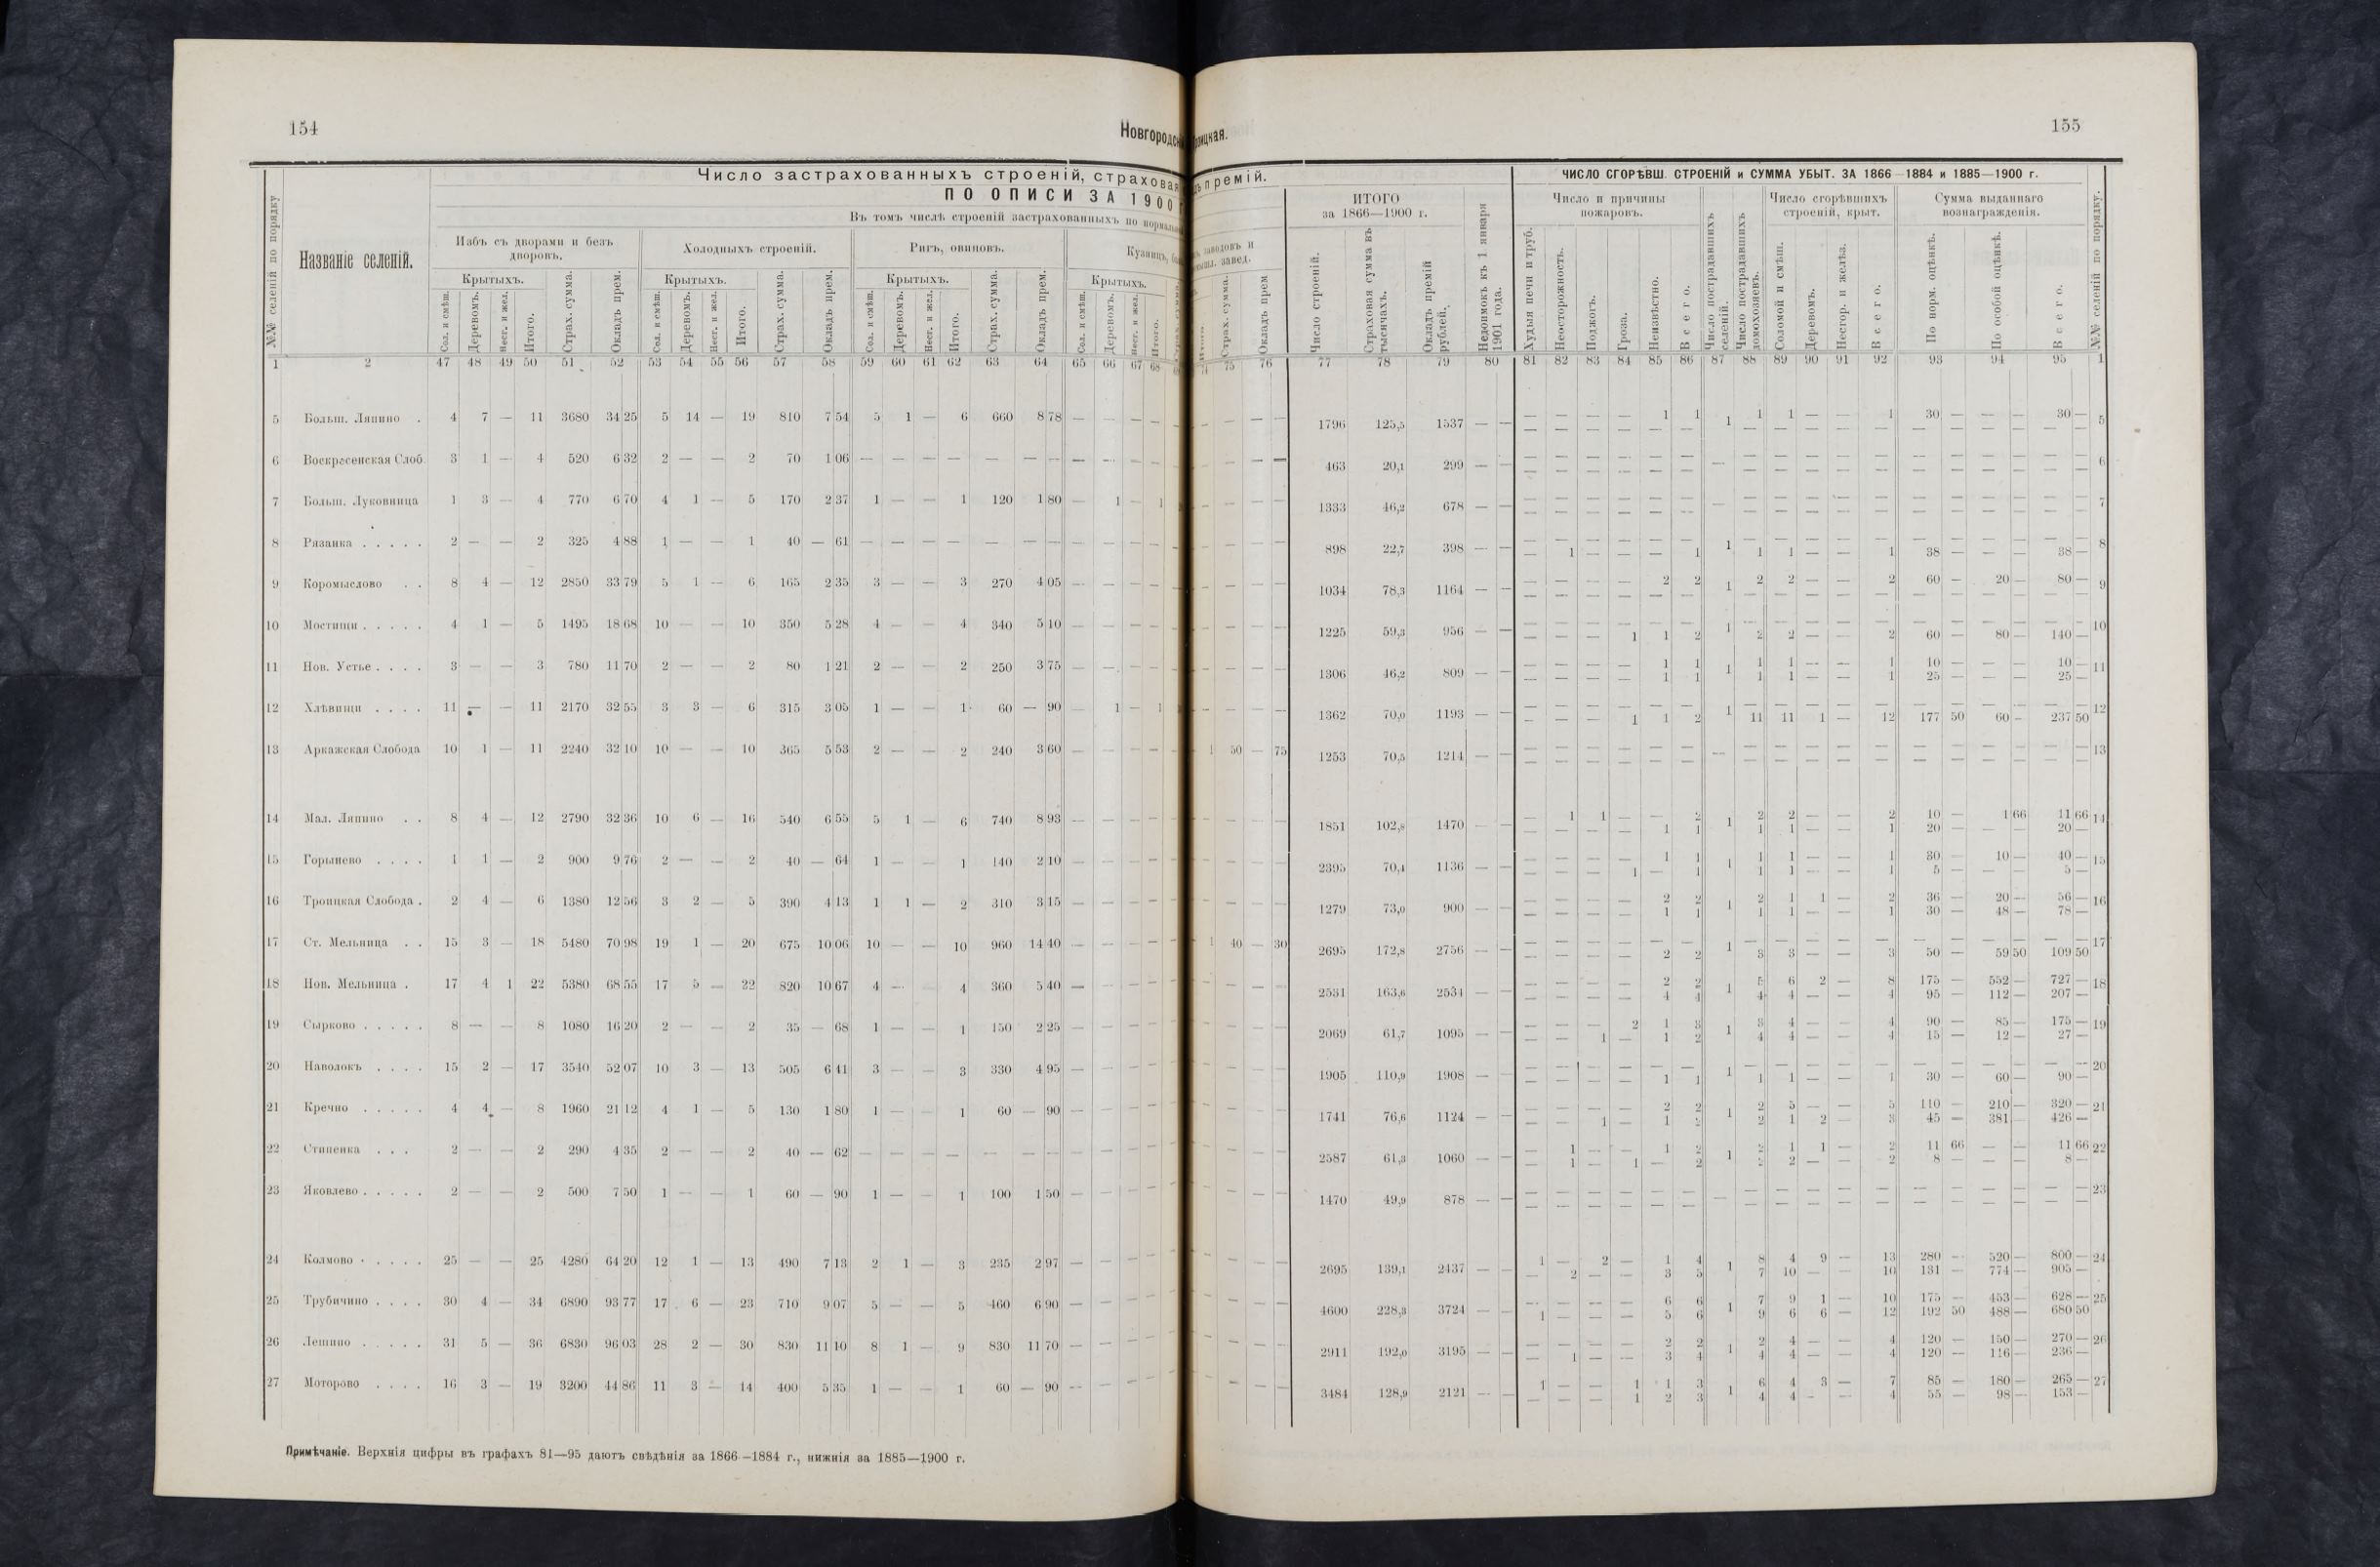 154
Новгородск
ряцкая.
155
Число застрахованныхъ строеній, страховая
ъ премій.
ПО ОПИСИ ЗА 1900
Въ томъ числѣ строеній застрахованныхъ по нормальн
ЧИСЛО СГОРѢВШ. СТРОЕНІЙ и СУММА УБЫТ. ЗА 1866—1884 и 1885—1900 г.
№№ селеній по порядку
Названіе селеній.
Избъ съ дворами и безъ дворовъ.
Холодныхъ строеній.
Ригъ, овиновъ.
Кузницъ,
заводовъ и
завед.
ИТОГО за 1866—1900 г.
Недоимокъ къ 1 января 1901 года.
Число и причины пожаровъ.
Число пострадавшихъ селеній.
Число пострадавшихъ домохозяевъ.
Число сгорѣвшихъ строеній, крыт.
Сумма выданнаго вознагражденія.
№№ селеній по порядку.
Крытыхъ. Страх. сумма. Окладъ прем. Крытыхъ. Страх. сумма. Окладъ прем. Крытыхъ. Страх. сумма. Окладъ прем. Крытыхъ.
Сол. и смѣш. Деревомъ. Несг. и жел. Итого. Сол. и смѣш. Деревомъ. Несг. и жел. Итого. Сол. и смѣш. Деревомъ. Несг. и жел. Итого. Сол. и смѣш. Деревомъ. Несг. и жел. Итого.
Страх. сумма. Окладъ прем Число строеній. Страховая сумма въ тысячахъ. Окладъ премій рублей. Худыя печи и труб. Неосторожность. Поджогъ. Гроза. Неизвѣстно. Всего. Соломой и смѣш. Деревомъ. Несгор. и желѣз. Всего. По норм. оцѣнкѣ. По особой оцѣнкѣ. Всего.
1 2 47 48 49 50 51 52 53 54 55 56 57 58 59 60 61 62 63 64 65 66 67 68 75 76 77 78 79 80 81 82 83 84 85 86 87 88 89 90 91 92 93 94 95 1
5 Больш. Ляпино . 4 7 — 11 3680 34 25 5 14 — 19 810 7 54 5 1 — 6 660 8 78 — — — — — — — 1796 125,5 1537 — — — — — — 1 1 1 1 1 — — 1 30 — — — 30 — 5
— — — — — — — — — — — — — — — —
6 Воскресенская Слоб. 3 1 — 4 520 6 32 2 — — 2 70 1 06 — — — — — — — — — — — — — — 463 20,1 299 — — — — — — — — — — — — — — — — — — — — 6
— — — — — — — — — — — — — — — — —
7 Больш. Луковница 1 3 — 4 770 6 70 4 1 — 5 170 2 37 1 — — 1 120 1 80 — 1 — 1 — — — 1333 46,2 678 — — — — — — — — — — — — — — — — — — — — 7
— — — — — — — — — — — — — — — — —
8 Рязанка . . . . . 2 — — 2 325 4 88 1 — — 1 40 — 61 — — — — — — — — — — — — — — 898 22,7 398 — — — — — — — — 1 — — — — — — — — — — — 8
— 1 — — — 1 1 1 — — 1 38 — — — 38 —
9 Коромыслово . . 8 4 — 12 2850 33 79 5 1 — 6 165 2 35 3 — — 3 270 4 05 — — — — — — — 1034 78,3 1164 — — — — — — 2 2 1 2 2 — — 2 60 — 20 — 80 — 9
— — — — — — — — — — — — — — — —
10 Мостищи . . . . . 4 1 — 5 1495 18 68 10 — — 10 350 5 28 4 — — 4 340 5 10 — — — — — — — 1225 59,3 956 — — — — — 1 1 2 1 2 2 — — 2 60 — 80 — 140 — 10
11 Нов. Устье . . . . 3 — — 3 780 11 70 2 — — 2 80 1 21 2 — — 2 250 3 75 — — — — — — — 1306 46,2 809 — — — — — — 1 1 1 1 1 — — 1 10 — — — 10 — 11
— — — — 1 1 1 1 — — 1 25 — — — 25 —
12 Хлѣвищи . . . . 11 — — 11 2170 32 55 3 3 — 6 315 3 05 1 — — 1 60 — 90 — 1 — 1 — — — 1362 70,0 1193 — — — — — 1 1 2 1 11 11 1 — 12 177 50 60 — 237 50 12
13 Аркажская Слобода 10 1 — 11 2240 32 10 10 — — 10 365 5 53 2 — — 2 240 3 60 — — — — 1 50 — 75 1253 70,5 1214 — — — — — — — — — — — — — — — — — — — — 13
— — — — — — — — — — — — — — — —
14 Мал. Ляпино . . 8 4 — 12 2790 32 36 10 6 — 16 540 6 55 5 1 — 6 740 8 93 — — — — — — — 1851 102,8 1470 — — — 1 1 — — 2 1 2 2 — — 2 10 — 1 66 11 66 14
— — — — 1 1 1 1 — — 1 20 — — — 20 —
15 Горынево . . . . 1 1 — 2 900 9 76 2 — — 2 40 — 64 1 — — 1 140 2 10 — — — — — — — 2395 70,4 1136 — — — — — — 1 1 1 1 1 — — 1 30 — 10 — 40 — 15
— — — 1 — 1 1 1 — — 1 5 — — — 5 —
16 Троицкая Слобода . 2 4 — 6 1380 12 56 3 2 — 5 390 4 13 1 1 — 2 310 3 15 — — — — — — — 1279 73,0 900 — — — — — — 2 2 1 2 1 1 — 2 36 — 20 — 56 — 16
— — — — 1 1 1 1 — — 1 30 — 48 — 78 —
17 Ст. Мельница . . 15 3 — 18 5480 70 98 19 1 — 20 675 10 06 10 — — 10 960 14 40 — — — — 1 40 — 30 2695 172,8 2756 — — — — — — — — 1 — — — — — — — — — — — 17
— — — — 2 2 3 3 — — 3 50 — 59 50 109 50
18 Нов. Мельница . 17 4 1 22 5380 68 55 17 5 — 22 820 10 67 4 — 4 360 5 40 — — — — — — — 2531 163,6 2534 — — — — — — 2 2 1 5 6 2 — 8 175 — 552 — 727 — 18
— — — — 4 4 4 4 — — 4 95 — 112 — 207 —
19 Сырково . . . . . 8 — — 8 1080 16 20 2 — — 2 35 — 68 1 — — 1 150 2 25 — — — — — — — 2069 61,7 1095 — — — — — 2 1 3 1 3 4 — — 4 90 — 85 — 175 — 19
— — 1 — 1 2 4 4 — — 4 15 — 12 — 27 —
20 Наволокъ . . . . 15 2 — 17 3540 52 07 10 3 — 13 505 6 41 3 — — 3 330 4 95 — — — — — — — 1905 110,9 1908 — — — — — — — — 1 — — — — — — — — — — — 20
— — — — 1 1 1 1 — — 1 30 — 60 — 90 —
21 Кречно . . . . . 4 4 — 8 1960 21 12 4 1 — 5 130 1 80 1 — — 1 60 — 90 — — — — — — — 1741 76,6 1124 — — — — — — 2 2 1 2 5 — — 5 110 — 210 — 320 — 21
— — 1 — 1 2 2 1 2 — 3 45 — 381 — 426 —
22 Стипенка . . . 2 — — 2 290 4 35 2 — — 2 40 — 62 — — — — — — — — — — — — — 2587 61,3 1060 — — — 1 — — 1 2 1 2 1 1 — 2 11 66 — — 11 66 22
— 1 — 1 — 2 2 2 — — 2 8 — — — 8 —
23 Яковлево . . . . . 2 — — 2 500 7 50 1 — — 1 60 — 90 1 — — 1 100 1 50 — — — — — — — 1470 49,9 878 — — — — — — — — — — — — — — — — — — — — 23
— — — — — — — — — — — — — — — —
24 Колмово . . . . . 25 — — 25 4280 64 20 12 1 — 13 490 7 13 2 1 — 3 235 2 97 — — — — — — — 2695 139,1 2437 — — 1 — 2 — 1 4 1 8 4 9 — 13 280 — 520 — 800 — 24
— 2 — — 3 5 7 10 — — 10 131 — 774 — 905 —
25 Трубичино . . . . 30 4 — 34 6890 93 77 17 6 — 23 710 9 07 5 — — 5 460 6 90 — — — — — — — 4600 228,3 3724 — — — — — — 6 6 1 7 9 1 — 10 175 — 453 — 628 — 25
1 — — — 5 6 9 6 6 — 12 192 50 488 — 680 50
26 Лешино . . . . . 31 5 — 36 6830 96 03 28 2 — 30 830 11 10 8 1 — 9 830 11 70 — — — — — — — 2911 192,0 3195 — — — — — — 2 2 1 2 4 — — 4 120 — 150 — 270 — 26
— 1 — — 3 4 4 4 — — 4 120 — 116 — 236 —
27 Моторово . . . . 16 3 — 19 3200 44 86 11 3 — 14 400 5 35 1 — — 1 60 — 90 — — — — — — — 3484 128,9 2121 — — 1 — — 1 1 3 1 6 4 3 — 7 85 — 180 — 265 — 27
— — — 1 2 3 4 4 — — 4 55 — 98 — 153 —
Примѣчаніе. Верхнія цифры въ графахъ 81—95 даютъ свѣдѣнія за 1866—1884 г., нижнія за 1885—1900 г.